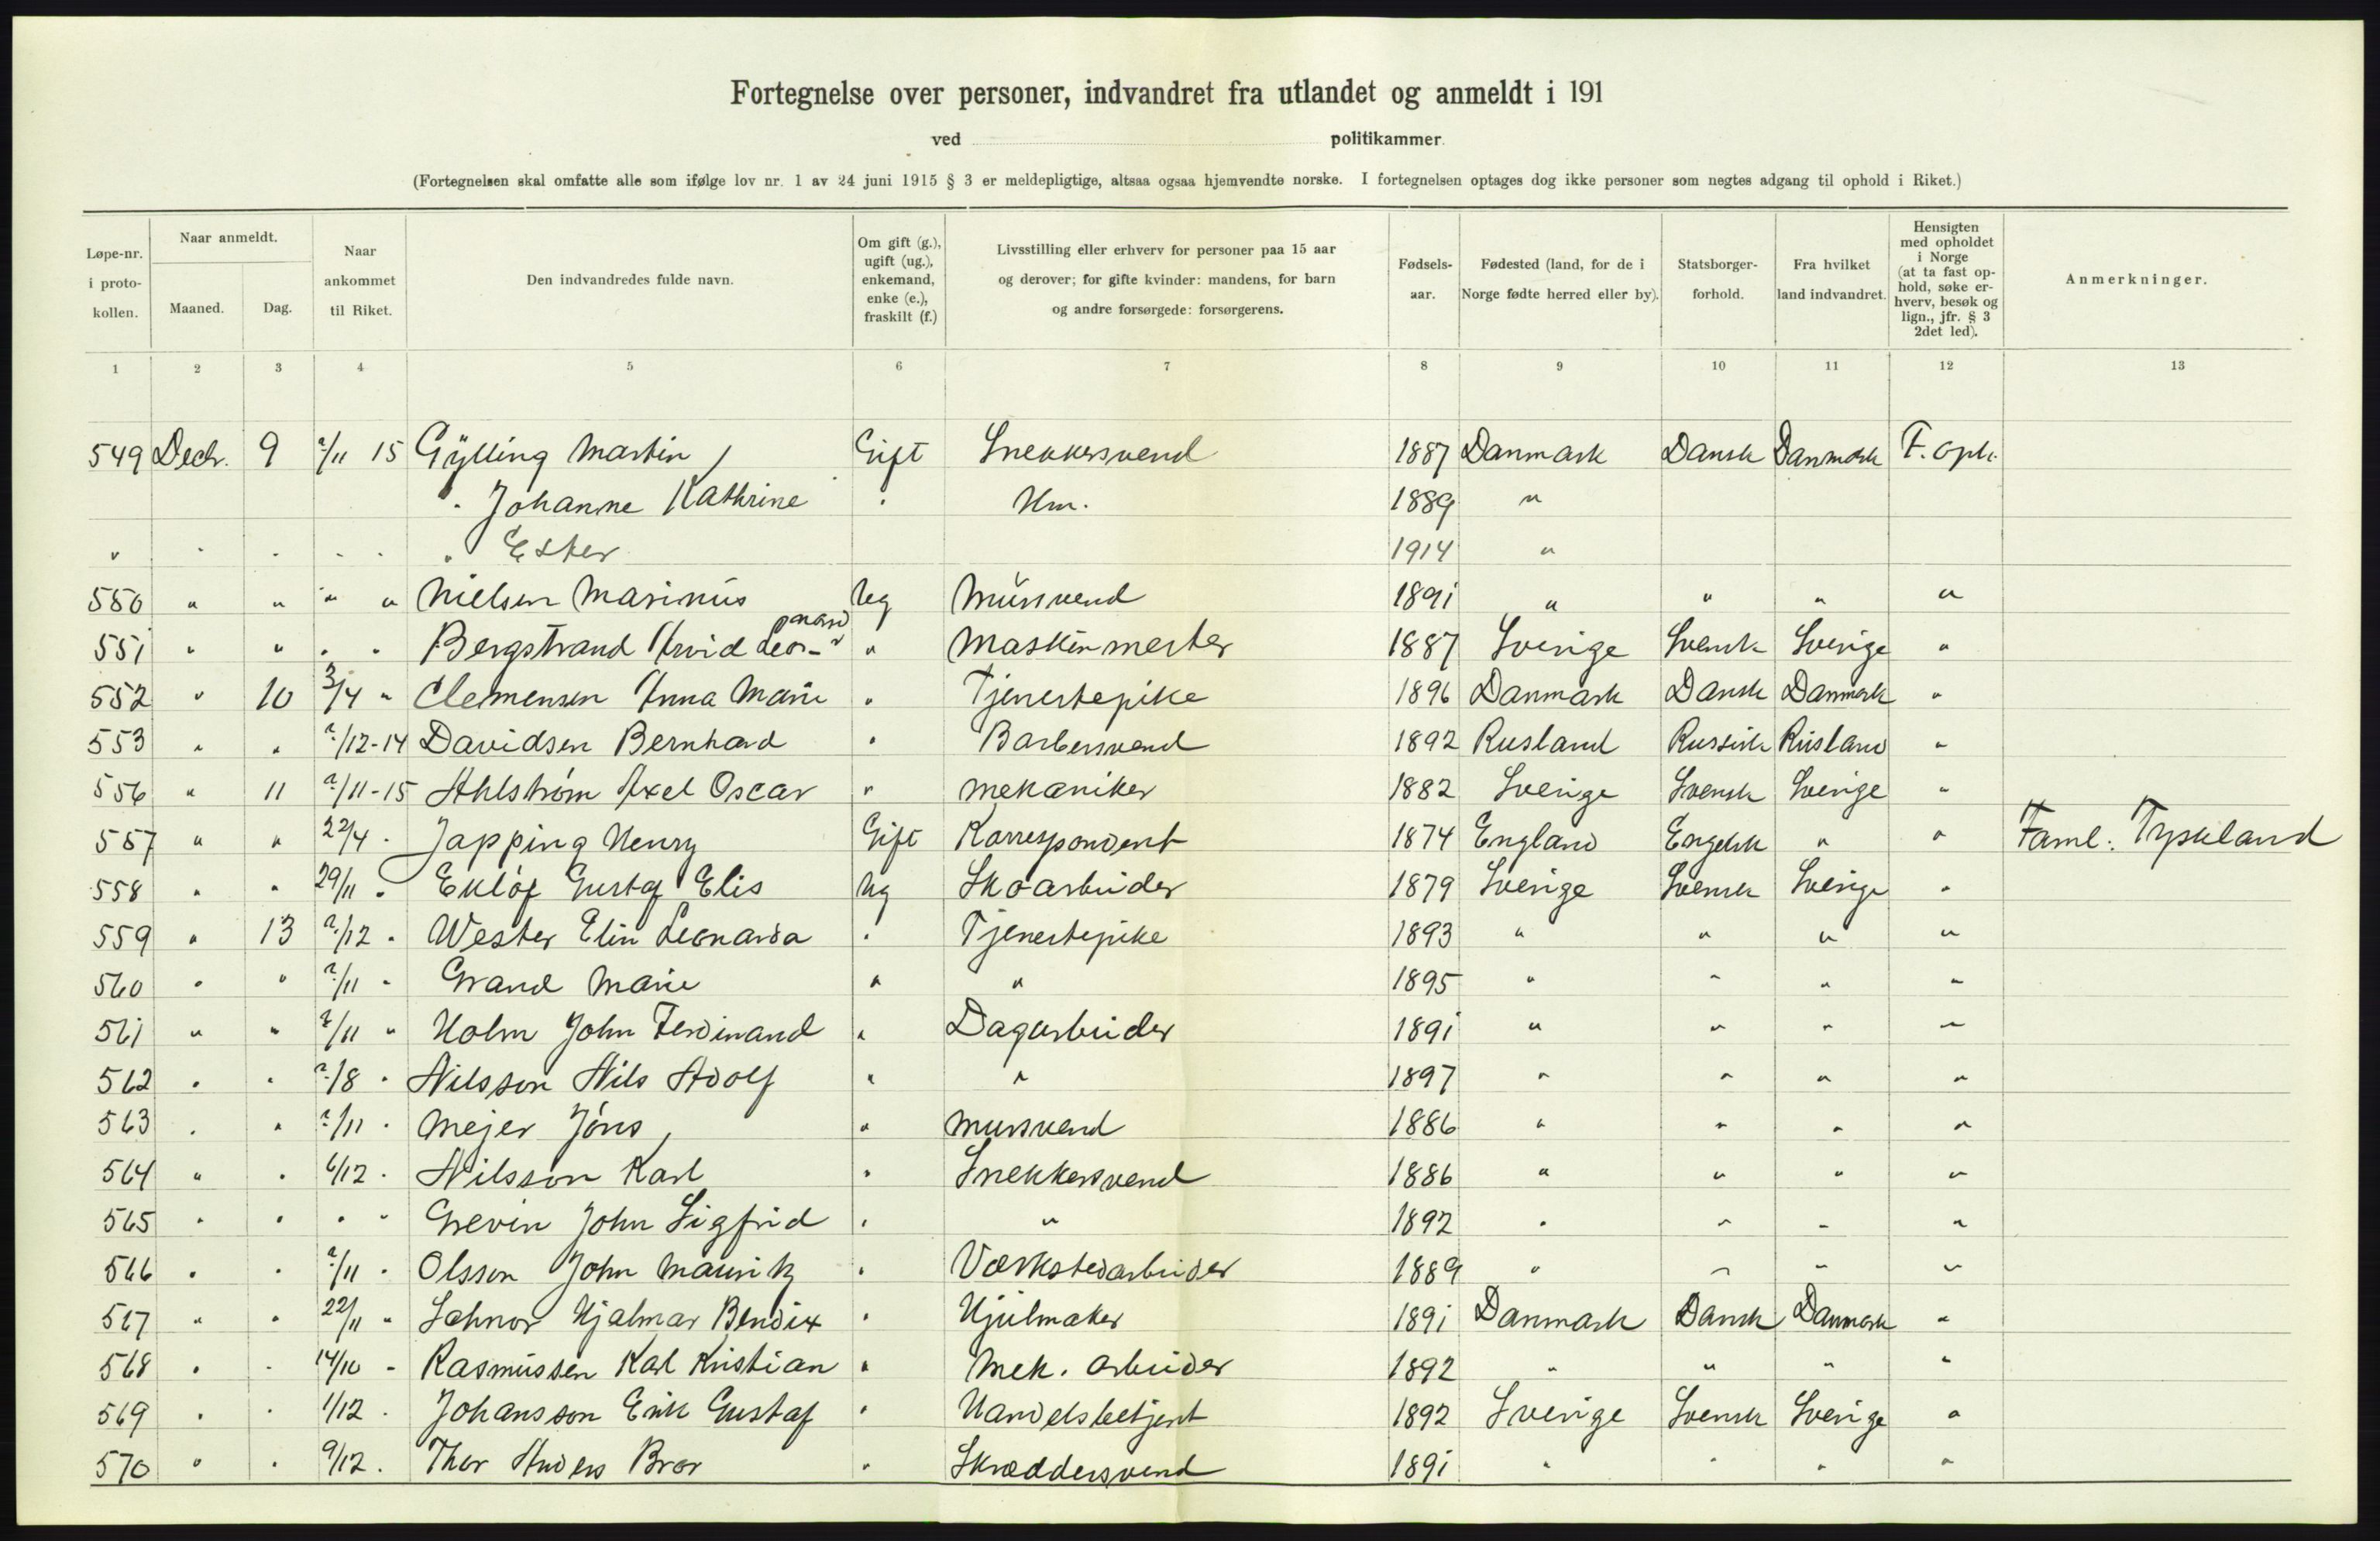 Fortegnelse over personer, indvandret fra utlandet og anmeldt i 191
ved politikammer.
(Fortegnelsen skal omfatte alle som ifølge lov nr. 1 av 24 juni 1915 § 3 er meldepligtige, altsaa ogsaa hjemvendte norske. I fortegnelsen optages dog ikke personer som negtes adgang til ophold i Riket.)
Løpe-nr. i proto-kollen. Naar anmeldt. Maaned. Dag. Naar ankommet til Riket. Den indvandredes fulde navn. Om gift (g.), ugift (ug.), enkemand, enke (e.), fraskilt (f.) Livsstilling eller erhverv for personer paa 15 aar og derover; for gifte kvinder: mandens, for barn og andre forsørgede: forsørgerens. Fødsels-aar. Fødested (land, for de i Norge fødte herred eller by). Statsborger-forhold. Fra hvilket land indvandret. Hensigten med opholdet i Norge (at ta fast op-hold, søke er-hverv, besøk og lign., jfr. § 3 2det led). Anmerkninger.
1 2 3 4 5 6 7 8 9 10 11 12 13
549 Decbr. 9 ?/11 15 Gylling Martin Gift Snekkersvend 1887 Danmark Dansk Danmark F. oph.
" Johanne Kathrine " Hm. 1889 "
" " " " " " Ester 1914 "
550 " " " " Nielsen Marinus Ug Mursvend 1891 " " " "
551 " " " " Bergstrand Arvid Leo-nard " Maskinmester 1887 Sverige Svensk Sverige "
552 " 10 3/4 " Clemensen Anna Marie " Tjenestepike 1896 Danmark Dansk Danmark "
553 " " ?/12-14 Davidsen Bernhard " Barbersvend 1892 Rusland Russisk Rusland "
556 " 11 ?/11-15 Ahlstrøm Axel Oscar " Mekaniker 1882 Sverige Svensk Sverige "
557 " " 22/4 " Japping Henry Gift Korrespondent 1874 England Engelsk " " Faml. Tyskland
558 " " 29/11 " Eklöf Gustaf Elis Ug Skoarbeider 1879 Sverige Svensk Sverige "
559 " 13 ?/12 " Wester Elin Leonarda " Tjenestepike 1893 " " " "
560 " " ?/11 " Grand Marie " " 1895 " " " "
561 " " ?/11 " Holm John Ferdinand " Dagarbeider 1891 " " " "
562 " " ?/8 " Nilsson Nils Adolf " " 1897 " " " "
563 " " ?/11 " Mejer Jöns " Mursvend 1886 " " " "
564 " " 6/12 " Nilsson Karl " Snekkersvend 1886 " " " "
565 " " " " Grevin John Sigfrid " " 1892 " " " "
566 " " ?/11 " Olsson John Mauritz " Værkstedarbeider 1889 " " " "
567 " " 22/11 " Hjalmar Bendix " Hjulmaker 1891 Danmark Dansk Danmark "
568 " " 14/10 " Rasmussen Karl Kristian " Mek. arbeider 1892 " " " "
569 " " 1/12 " Johansson Erik Gustaf " Handelsbetjent 1892 Sverige Svensk Sverige "
570 " " 9/12 " Thor Anders Bror " Skræddersvend 1891 " " " "